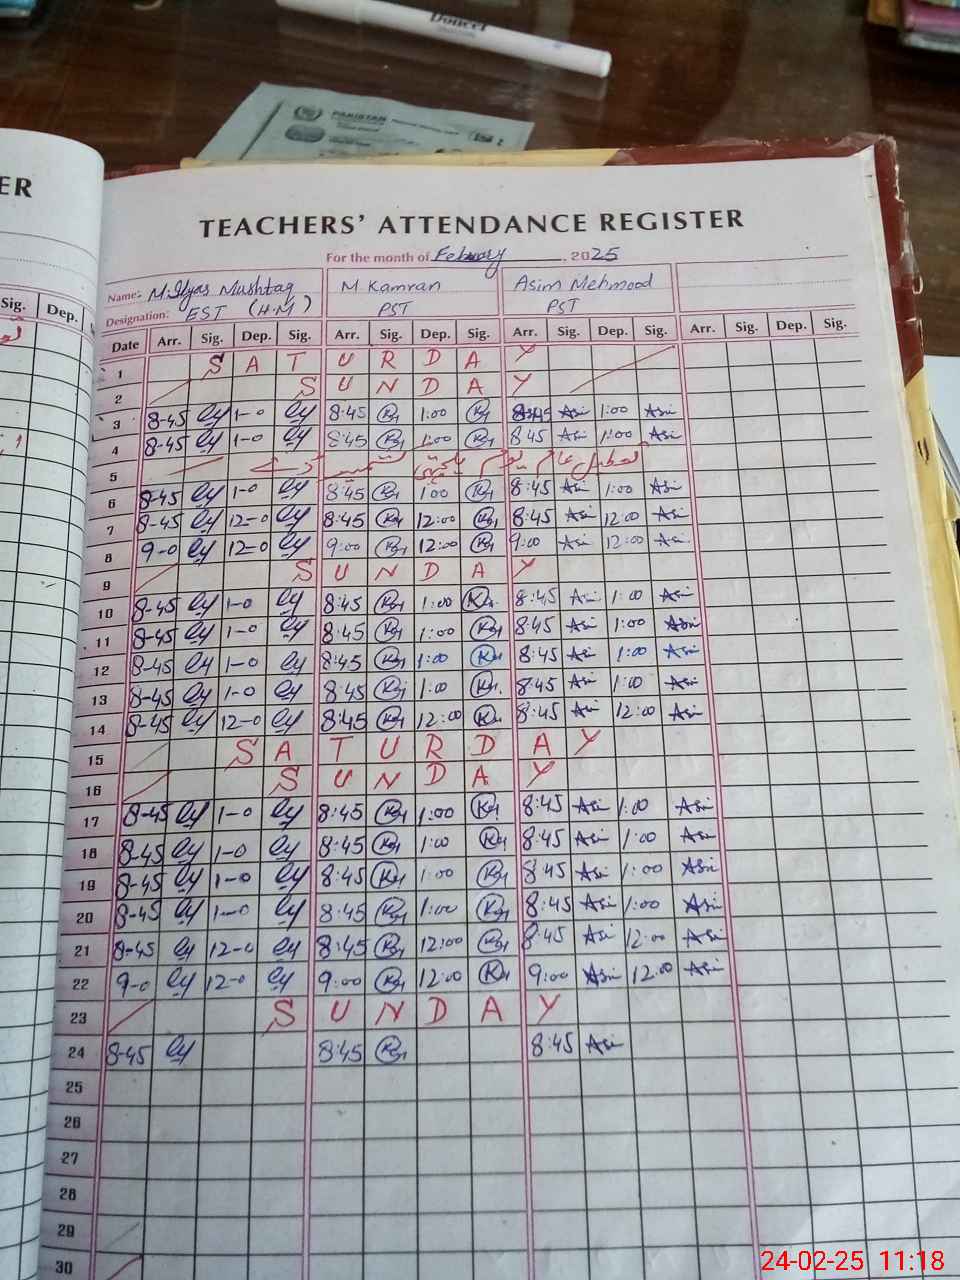 Doucer
PAKISTAN
ER
TEACHERS' ATTENDANCE REGISTER
For the month of February, 2025
Name: M.Ilyas Mushtaq M Kamran Asim Mehmood
Designation: EST (H.M) PST PST
Sig. Dep.
Date Arr. Sig. Dep. Sig. Arr. Sig. Dep. Sig. Arr. Sig. Dep. Sig. Arr. Sig. Dep. Sig.
1 S A T U R D A Y
2 S U N D A Y
3 8-45 1-0 8:45 1:00 8:45 Asi 1:00 Asi
4 8-45 1-0 8:45 1:00 8:45 Asi 1:00 Asi
5 تعطیل عام یوم یکجہتی کشمیر
6 8-45 1-0 8:45 1:00 8:45 Asi 1:00 Asi
7 8-45 12-0 8:45 12:00 8:45 Asi 12:00 Asi
8 9-0 12-0 9:00 12:00 9:00 Asi 12:00 Asi
9 S U N D A Y
10 8-45 1-0 8:45 1:00 8:45 Asi 1:00 Asi
11 8-45 1-0 8:45 1:00 8:45 Asi 1:00 Asi
12 8-45 1-0 8:45 1:00 8:45 Asi 1:00 Asi
13 8-45 1-0 8:45 1:00 8:45 Asi 1:00 Asi
14 8-45 12-0 8:45 12:00 8:45 Asi 12:00 Asi
15 S A T U R D A Y
16 S U N D A Y
17 8-45 1-0 8:45 1:00 8:45 Asi 1:00 Asi
18 8-45 1-0 8:45 1:00 8:45 Asi 1:00 Asi
19 8-45 1-0 8:45 1:00 8:45 Asi 1:00 Asi
20 8-45 1-0 8:45 1:00 8:45 Asi 1:00 Asi
21 8-45 12-0 8:45 12:00 8:45 Asi 12:00 Asi
22 9-0 12-0 9:00 12:00 9:00 Asi 12:00 Asi
23 S U N D A Y
24 8-45 8:45 8:45 Asi
25
26
27
28
29
30
24-02-25 11:18